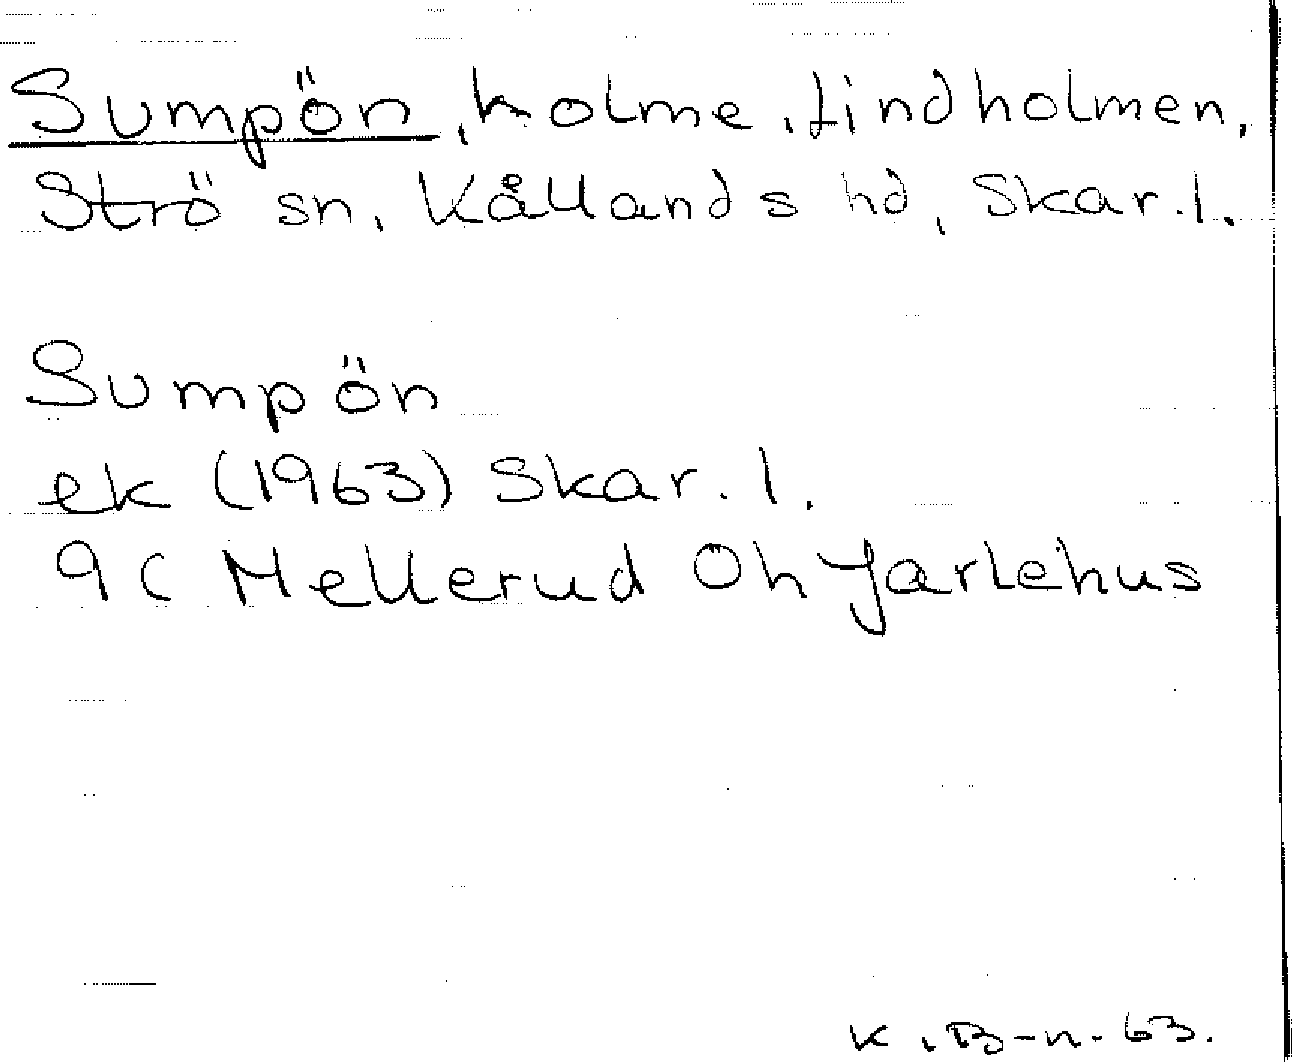 Sumpön, holme, Lindholmen,
Strö sn, Kållands hd, Skar.l.
Sumpön
ek (1963) Skar.l.
9C Mellerud Öh Jarlehus
K.B-n.63.